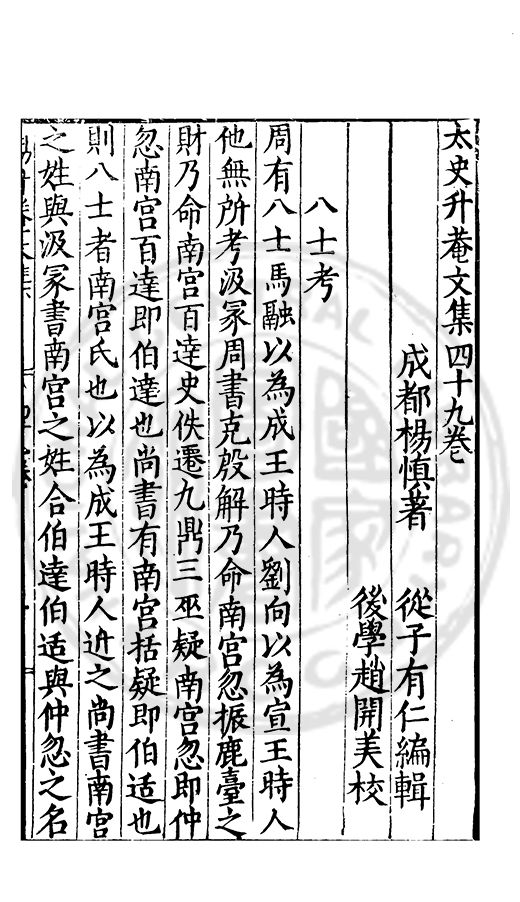 太史升菴文集四十九卷
成都楊慎著 從子有仁編輯
後學趙開美校
八士考
周有八士馬融以為成王時人劉向以為宣王時人
他無所考汲冡周書克殷解乃命南宮忽振鹿臺之
財乃命南宮百達史佚遷九鼎三巫疑南宮忽即仲
忽南宮百達即伯達也尚書有南宮括疑即伯适也
則八士者南宮氏也以為成王時人近之尚書南宮
之姓與汲冡書南宮之姓合伯達伯适與仲忽之名